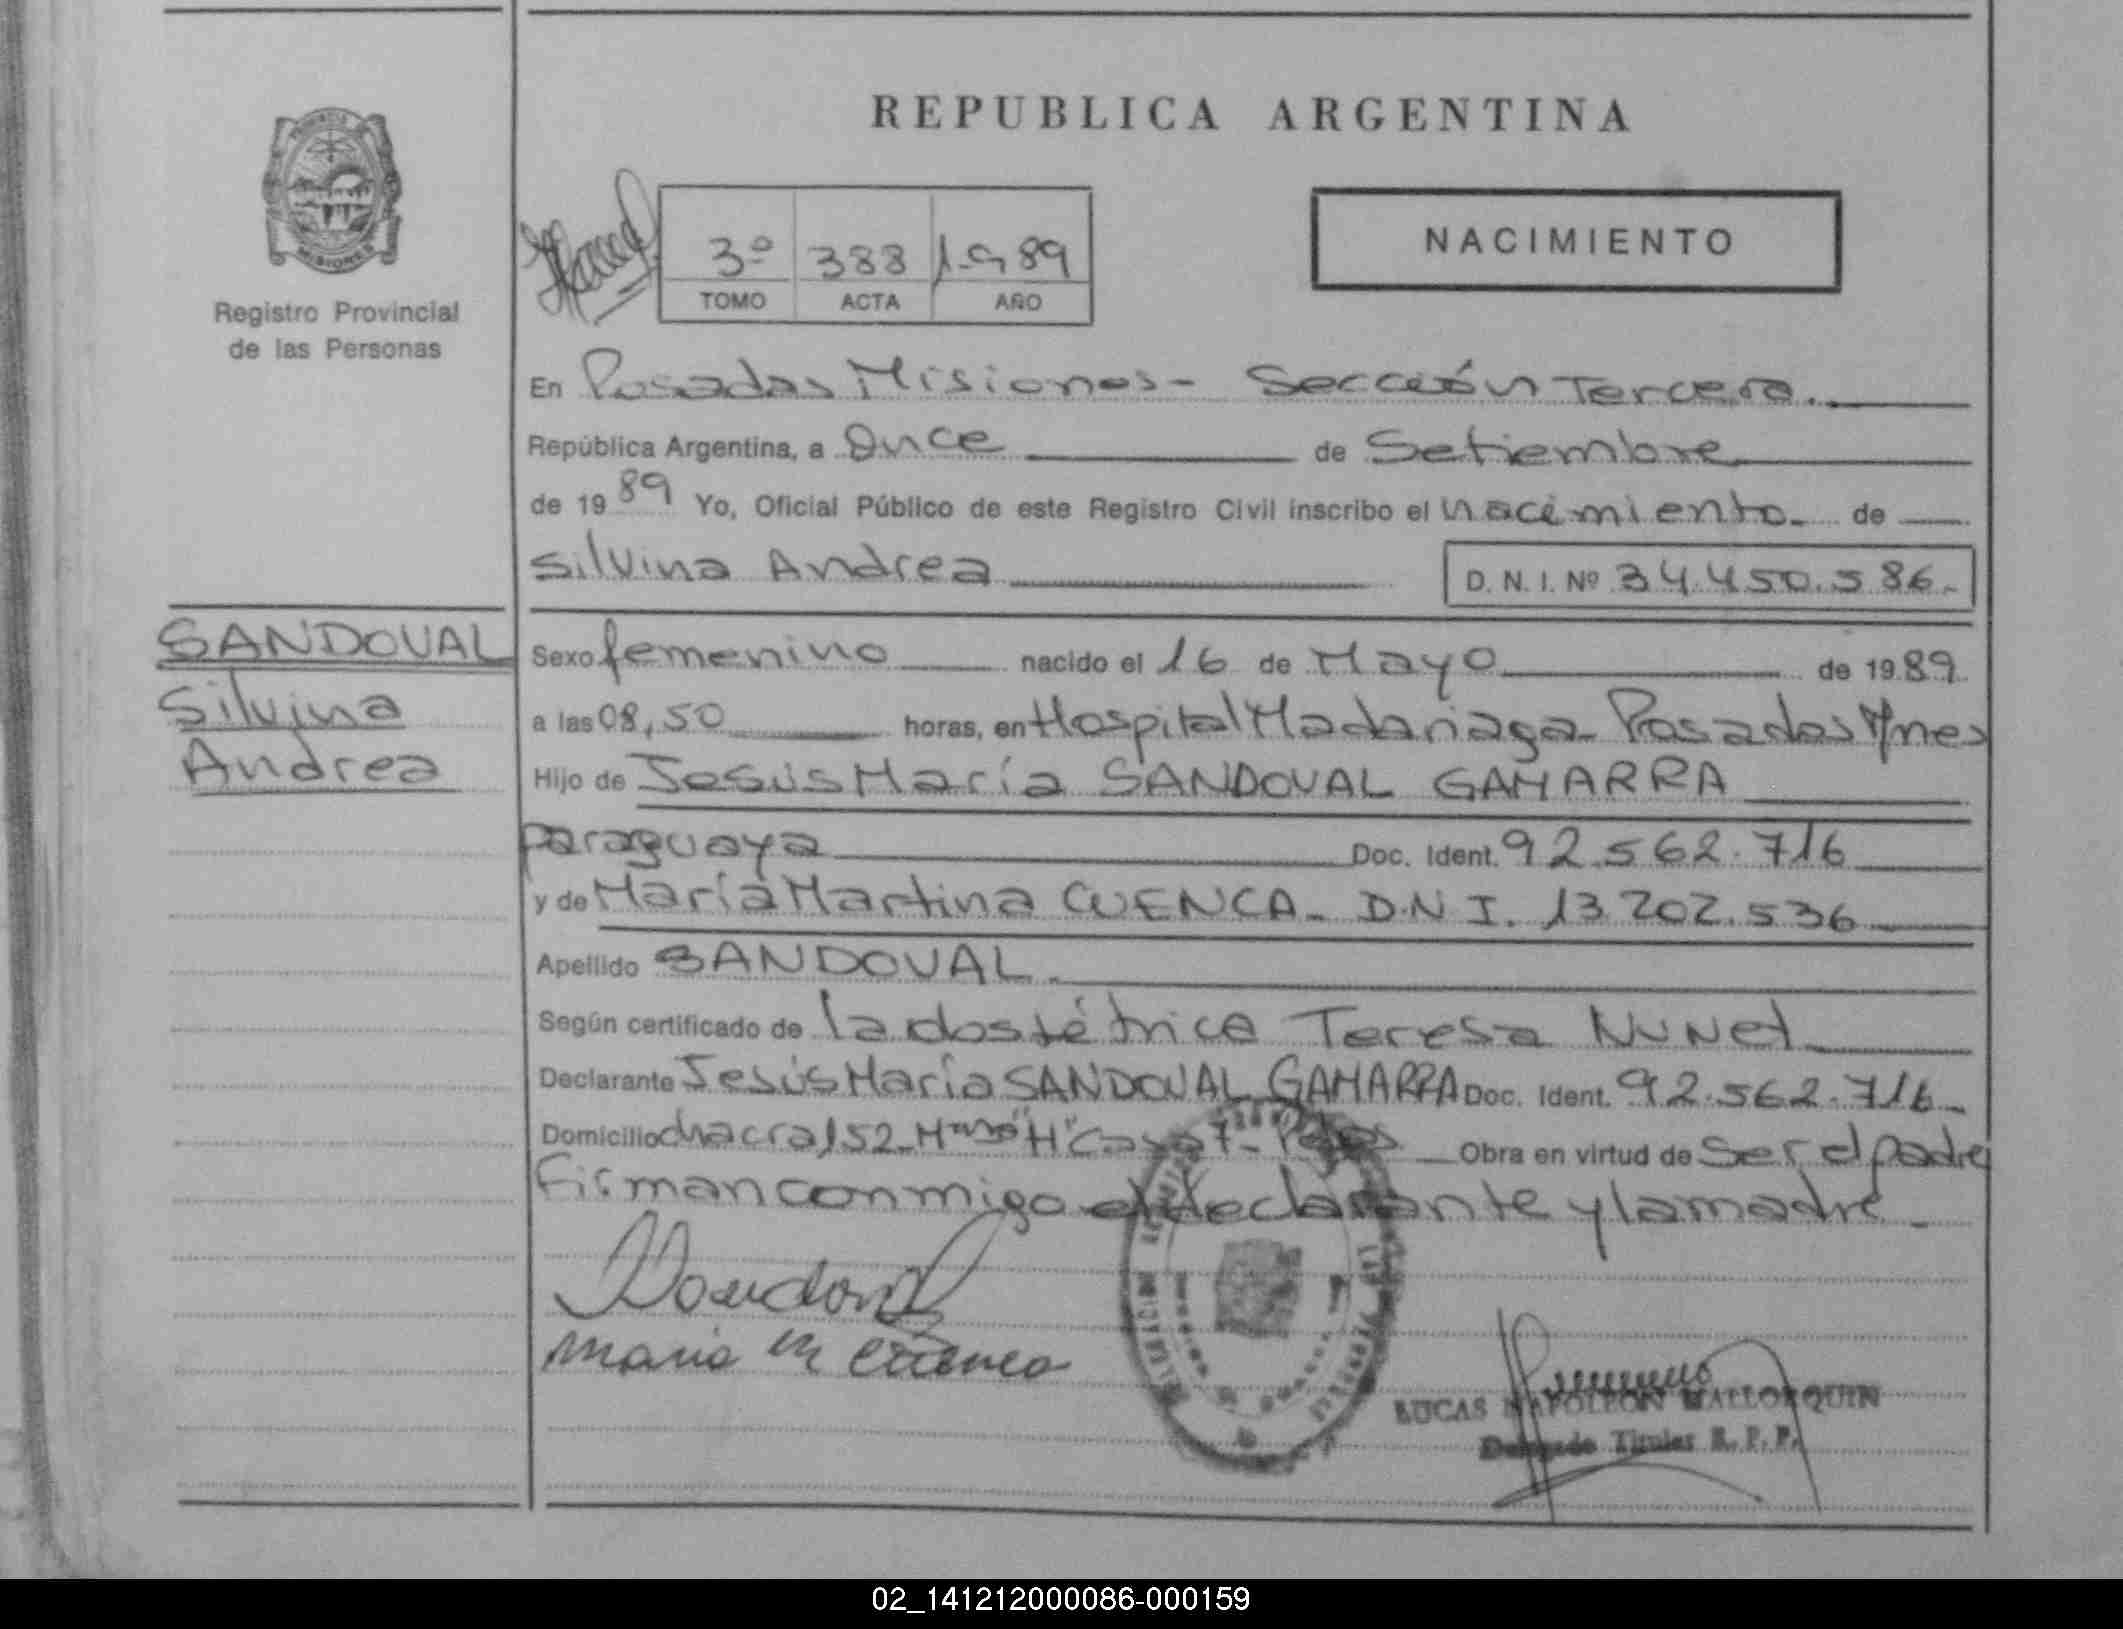 REPUBLICA ARGENTINA
PROVINCIA
MISIONES
Registro Provincial
de las Personas
3º 388 1989
TOMO ACTA AÑO
NACIMIENTO
En Posadas Misiones - Sección Tercera.
República Argentina, a Once de Setiembre
de 19 89 Yo, Oficial Público de este Registro Civil inscribo el nacimiento. de
Silvina Andrea D. N. I. Nº 34.450.586.-
SANDOVAL
Silvina
Andrea
Sexo femenino nacido el 16 de Mayo de 19 89
a las 08,50 horas, en Hospital Madariaga - Posadas Mnes
Hijo de Jesús María SANDOVAL GAMARRA
paraguaya Doc. Ident. 92.562.716
y de María Martina CUENCA - D.N.I. 13.202.536
Apellido SANDOVAL.
Según certificado de la obstétrica Teresa
Declarante Jesús María SANDOVAL GAMARRA Doc. Ident. 92.562.716 -
Domicilio chacra 152 - "H" Casa 7 - Obra en virtud de Ser el padre
Firman conmigo el declarante y la madre -
Maria M Cuenca
LUCAS NAPOLEON MALLORQUIN
Delegado Titular R. P. P.
02_141212000086-000159